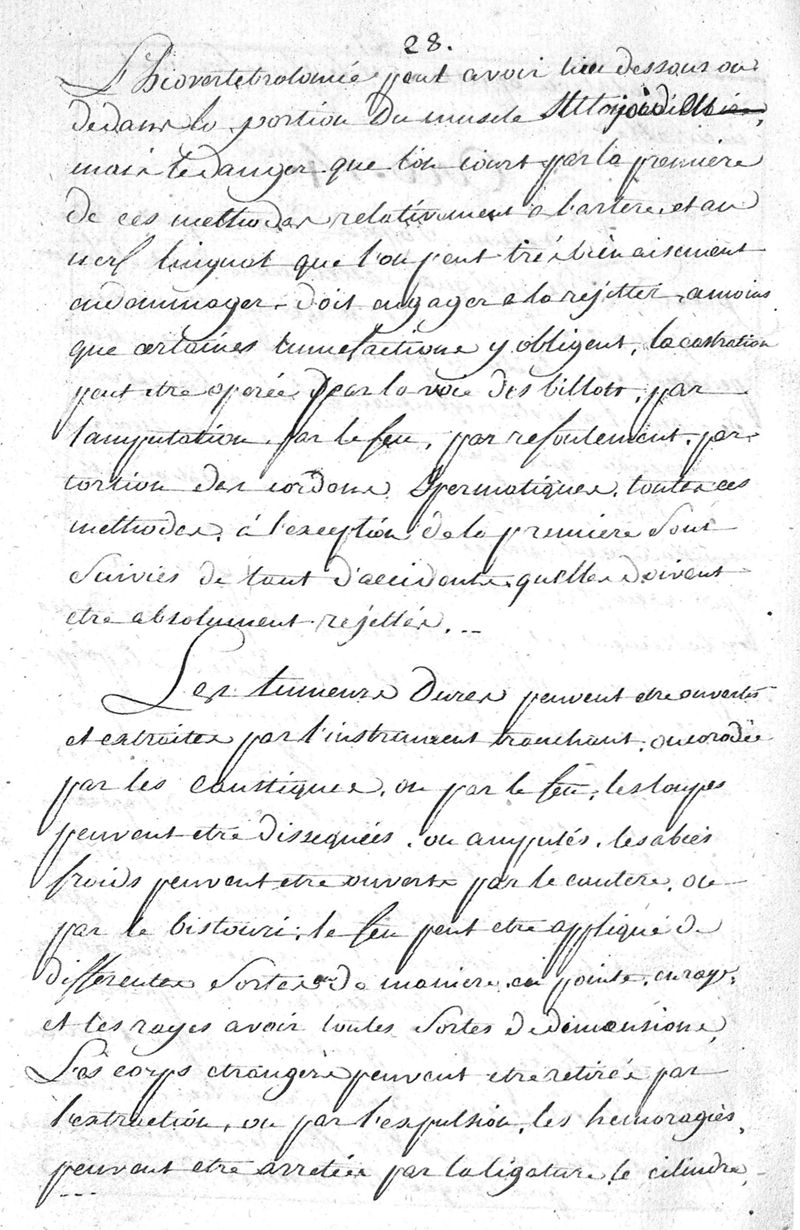 28.
L'hiovertebrotomie peut avoir lieu dessous ou
dedans la portion du muscle
mais le danger que l'on court par la premiere
de ces methodes relativement a l'artere, et au
nerf lingual que l'on peut trés bien aisement
endommager, doit engager a la rejetter, amoins
que certaines tumefactions y obligent, la castration
peut etre operée par la voie des billots, par
l'amputation, par le feu, par refoulement, par
tortion des cordons spermatiques, toutes ces
methodes, á l'exception de la premiere sont
suivies de tant d'accidents, quelles doivent
etre absolument rejettés. --
Les tumeurs dures peuvent etre ouvertes
et extraites par l'instrument tranchant, ou
par les caustiques, ou par le feu, les loupes
peuvent etre dissequées, ou amputés, les abcés
froids peuvent etre ouverts par le cautere, ou
par le bistouri, le feu peut etre appliqué de
differentes sortes de maniere, en pointe, en raye,
et les rayes avoir toutes sortes de dimensions,
Les corps etrangers peuvent etre retirés par
l'extraction, ou par l'expulsion, les hemoragies,
peuvent etre arretées par la ligature, le cilindre,